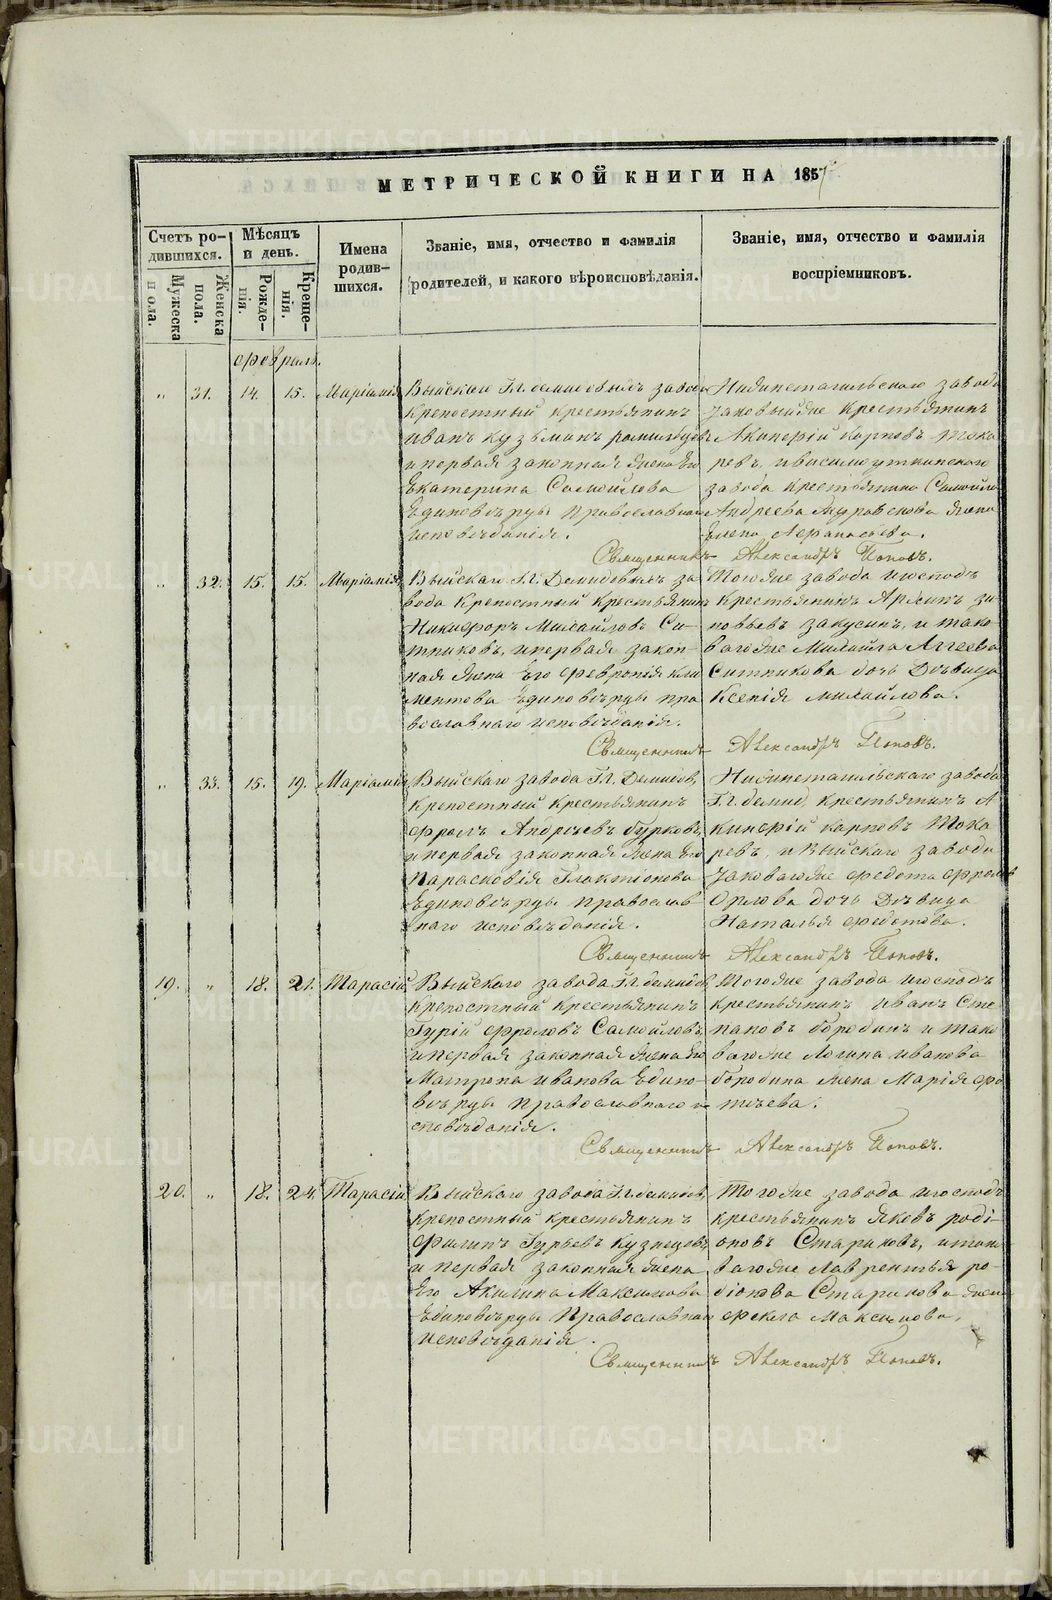 МЕТРИЧЕСКОЙ КНИГИ НА 1857
Счетъ ро-
дившихся.
Мужеска
пола.
Женска
пола.
Мѣсяцъ
и день.
Рожде-
нія.
Креще-
нія.
Имена
родив-
шихся.
Званіе, имя, отчество и фамилія
родителей, и какого вѣроисповѣданія.
Званіе, имя, отчество и фамилія
воспріемниковъ.
февраль.
„ 31. 14. 15. Маріамія
Выйскаго Гг. Демидовыхъ завода
крепостный крестьянинъ
Иванъ Кузьминъ
и первая законная жена Его
Екатерина Самойлова
Единоверцы православнаго
исповѣданія.
Нижнетагильскаго завода
крестьянинъ
Акинфій Карповъ Тока
ревъ, и Висимоуткинскаго
завода крестьянина Самойла
Андреева Муравскова жена
Елена Афанасьева.
Священникъ Александръ Поповъ.
„ 32. 15. 15. Маріамія
Выйскаго Гг. Демидовыхъ за
вода крепостный крестьянинъ
Никифоръ Михайловъ Си-
тниковъ, и первая закон-
ная жена Его Февронія Кли
ментова Единоверцы пра
вославнаго исповѣданія.
Тогоже завода и господъ
крестьянинъ Архипъ Зи
новьевъ Закусинъ, и тако
вагоже Михайла Аггеева
Ситникова дочь Девица
Ксенія Михайлова.
Священникъ Александръ Поповъ.
„ 33. 15. 19. Маріамія
Выйскаго завода Гг. Демидов.
крепостный крестьянинъ
Фролъ Андреевъ Бурковъ,
и первая законная жена Его
Парасковія Глактіонова
Единоверцы православ
наго исповѣданія.
Нижнетагильскаго завода
Гг. Демид. крестьянинъ А
кинфій Карповъ Тока
ревъ, и Выйскаго завода
таковагоже Федота Фролов
Орлова дочь Девица
Наталья Федотова.
Священникъ Александръ Поповъ.
19. „ 18. 21. Тарасій
Выйскаго завода Гг. Демидов.
крепостный крестьянинъ
Гурій Фроловъ Самойловъ
и первая законная жена Его
Матрона Иванова Едино
верцы православнаго и
споведанія.
Тогоже завода и господъ
крестьянинъ Иванъ Сте
пановъ Бородинъ и тако
вагоже Логина Иванова
Бородина жена Марія Фо
тѣева.
Священникъ Александръ Поповъ.
20. „ 18. 24. Тарасій
Выйскаго завода Гг. Демидов.
крепостный крестьянинъ
Филипъ Гурьевъ Кузнецовъ
и первая законная жена
Его Акилина Максимова
Единоверцы Православнаго
исповѣданія.
Тогоже завода и господъ
крестьянинъ Яковъ Роді-
оновъ Стариковъ, и тако
вагоже Лаврентья Ро-
діонова Старикова жена
Фекла Максимова.
Священникъ Александръ Поповъ.